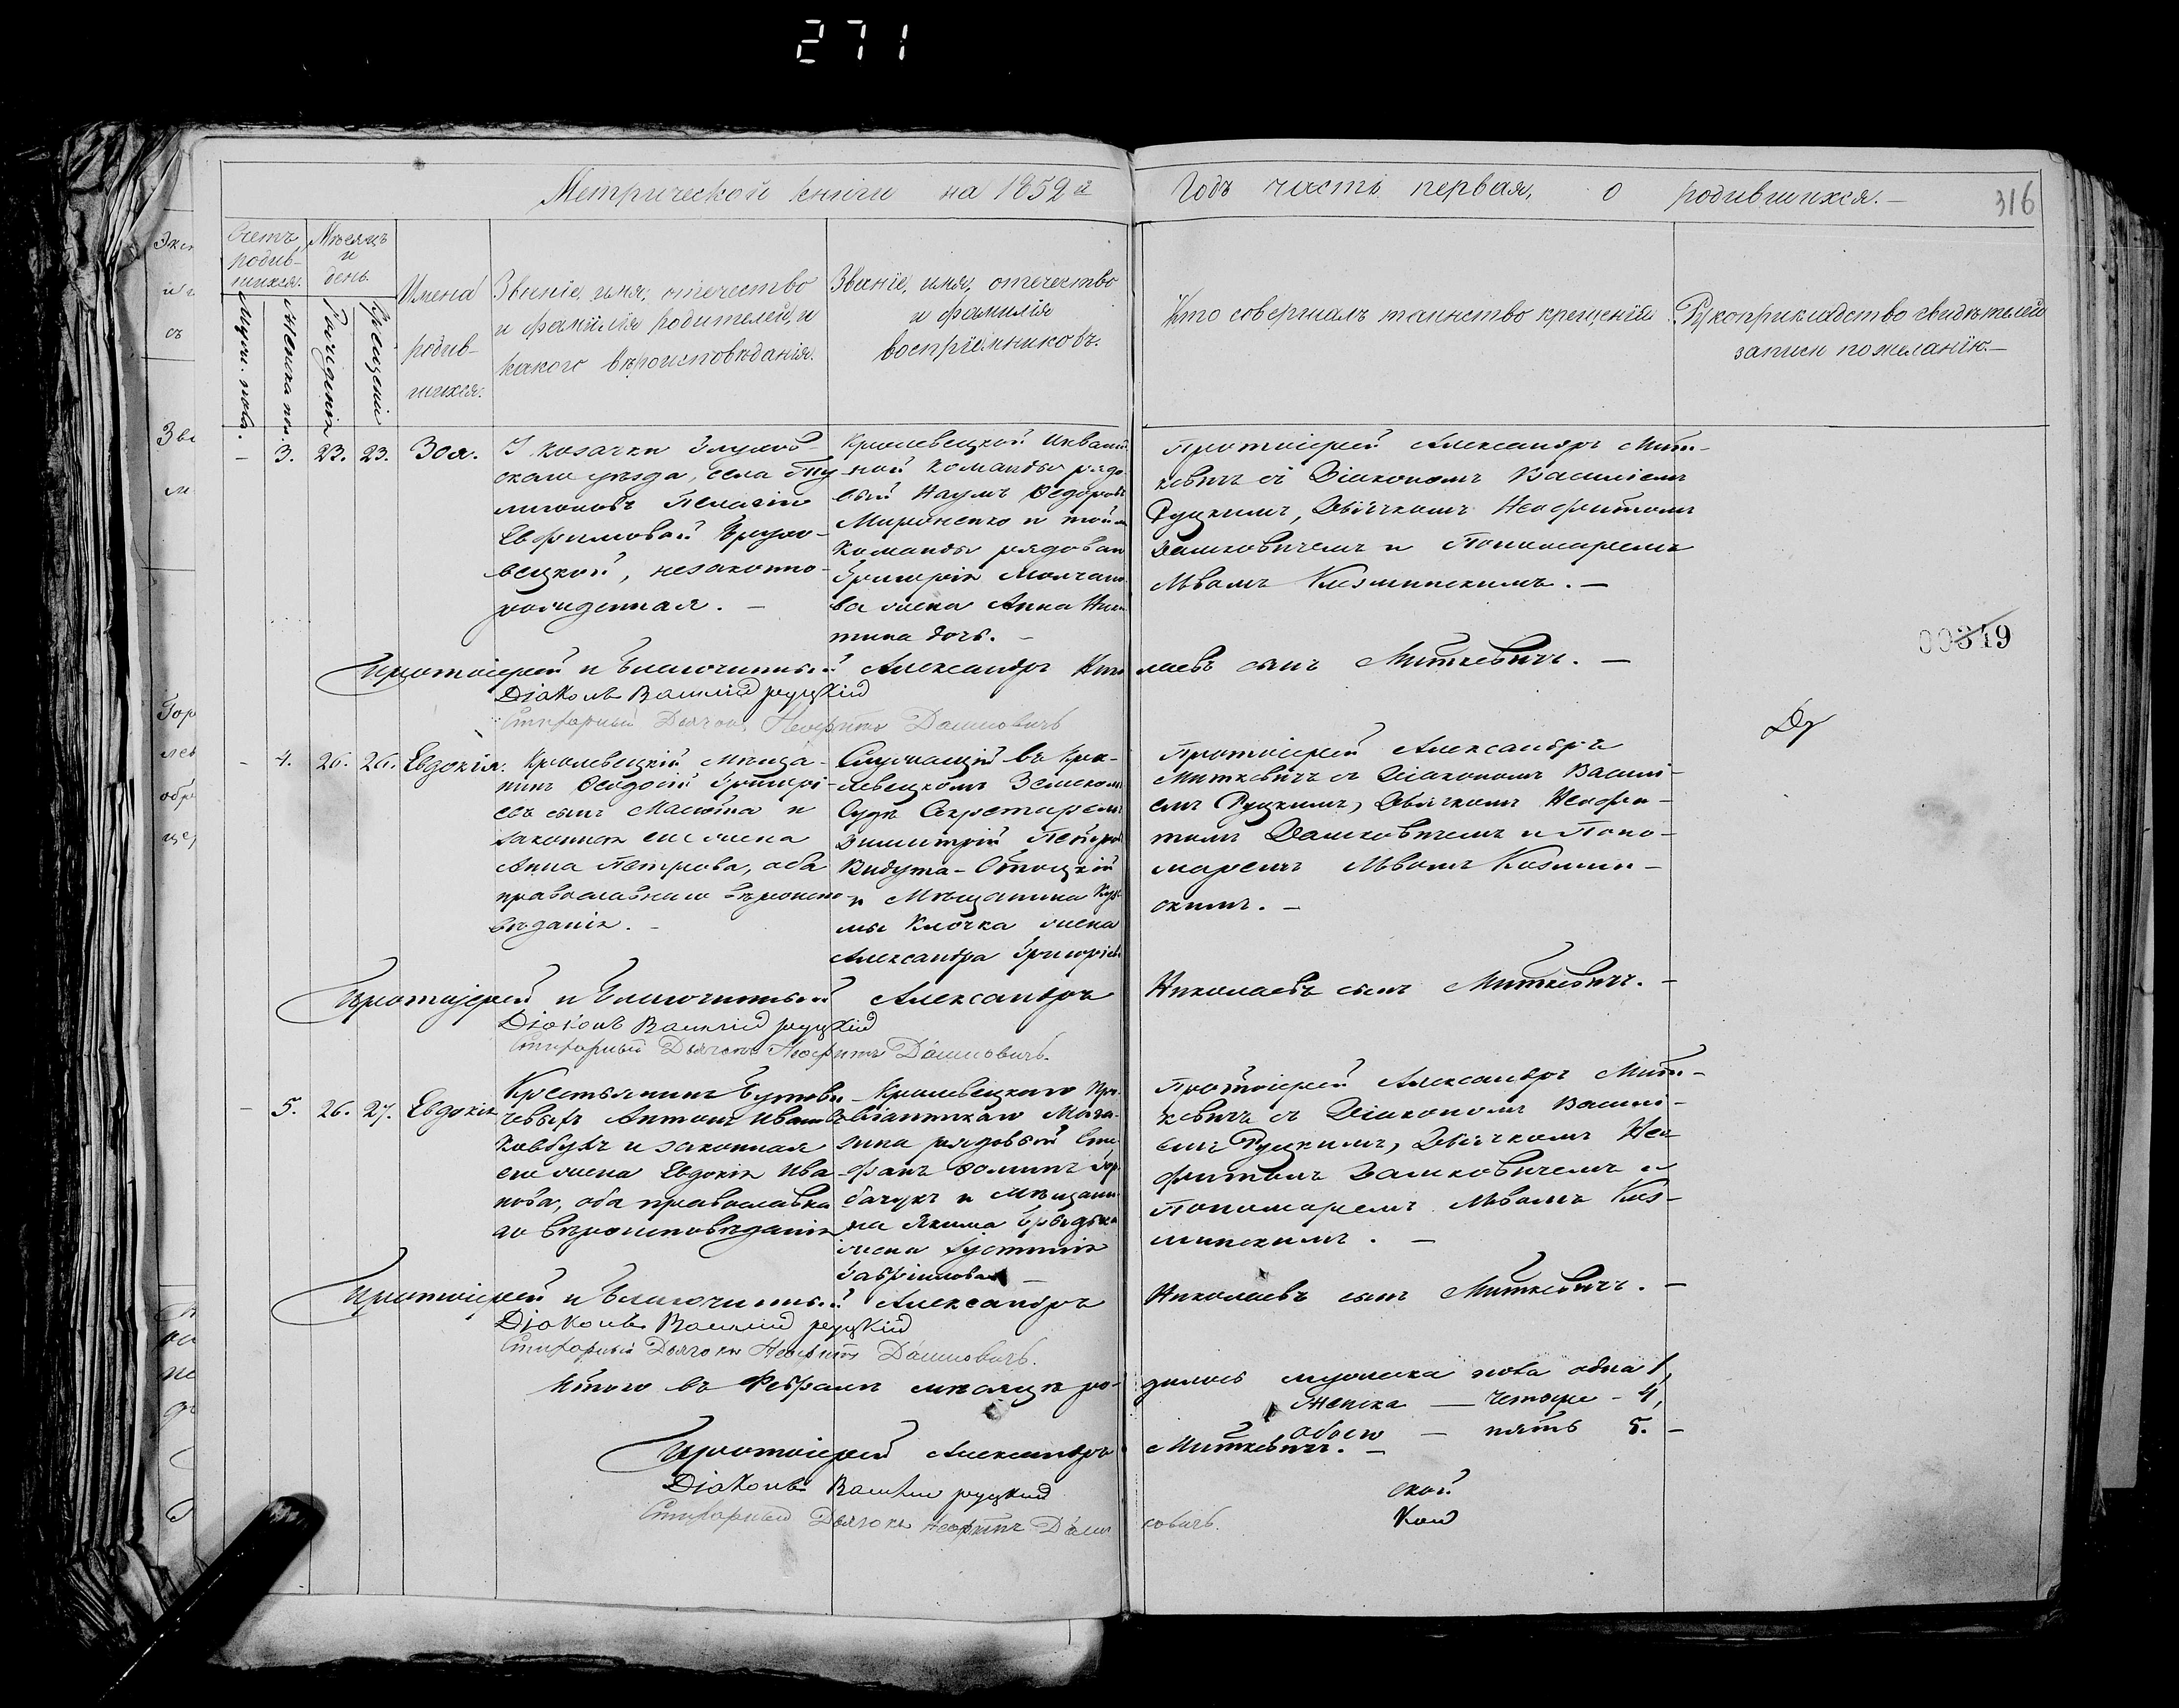 271
Метрической книги на 1859й Годъ часть первая, о родившихся.—
316
Счетъ родив-
шихся.
Мѣсяцъ
и
день.
Мужеска пола.
Женска пол.
Рожденія
Крещенія
Имена
родив-
шихся.
Званіе, имя, отечество
и фамилія родителей, и
какого вѣроисповѣданія.
Званіе, имя, отечество
и фамилія
воспріемниковъ.
Кто совершалъ таинство крещенія
Рукоприкладство свидѣтелей
записи по желанію.—
– 3. 23. 23. Зоя.
У козачки Глухов-
скаго уѣзда, села
Пелагіи
Ефимовой
вецкой, незаконно-
рожденная. —
Кролевецкой Инвалид-
ной команды рядо-
вый Наумъ Федоровъ
Мироненко и той же
команды рядоваго
Григорія Молчано-
ва жена Анна Ники-
тина дочь. —
Протоіерей Александръ Мит-
кевичъ съ Діакономъ Василіемъ
Руцкимъ, Дьячкомъ Неофитомъ
Дашковичемъ и Пономаремъ
Львомъ Козминскимъ. —
Протоіерей и Благочинный Александръ Нико лаевъ сынъ Миткевичъ. —
Діаконъ Василій руцкій
Стихарный Дьячокъ Неофитъ Дашковичъ
00319
– 4. 26. 26. Евдокія.
Кролевецкій мѣща-
нинъ Феодосій Григорі-
евъ сынъ Масюта и
законная его жена
Анна Петрова, оба
православнаго вѣроиспо-
вѣданія. —
Служащій въ Кро-
левецкомъ Земскомъ
Судѣ Секретаремъ
Димитрій Петровъ
Видута-Отоцкій
и Мѣщанина Кузь-
мы Клочка жена
Александра Григоріева
Протоіерей Александръ
Миткевичъ съ Діакономъ Васил-
емъ Руцкимъ, Дьячкомъ Неофи-
томъ Дашковичемъ и Поно-
маремъ Львомъ Козмин-
скимъ. —
Протоіерей и Благочинный Александръ Николаевъ сынъ Миткевичъ. —
Діаконъ Василій руцкій
Стихарный Дьячокъ Неофитъ Дашковичъ.
– 5. 26. 27. Евдокія
Крестьянинъ Бутови-
чевыхъ Антонъ Ивановъ
Ковбукъ и законная
его жена Евдокія Ива-
нова, оба православна-
го вѣроисповѣданія
Кролевецкаго Про-
віантскаго Мага-
зина рядовый Сте-
фанъ Фоминъ Гор-
бачукъ и Мѣщани-
на Якима
жена Іустинія
Гавріилова —
Протоіерей Александръ Мит-
кевичъ съ Діакономъ Васил-
емъ Руцкимъ, Дьячкомъ Нео-
фитомъ Дашковичемъ и
Пономаремъ Львомъ Коз-
минскимъ. —
Протоіерей и Благочинный Александръ Николаевъ сынъ Миткевичъ. —
Діаконъ Василій руцкій
Стихарный Дьячокъ Неофитъ Дашковичъ.
Итого въ Февралѣ мѣсяцѣ ро- дилось мужеска пола одна 1,
Женска — четыре – 4,
обоего — пять 5. –
Протоіерей Александръ Миткевичъ. —
Діаконъ Василій руцкій
Стихарный Дьячокъ Неофитъ Даш ковичъ.
ской
Кой